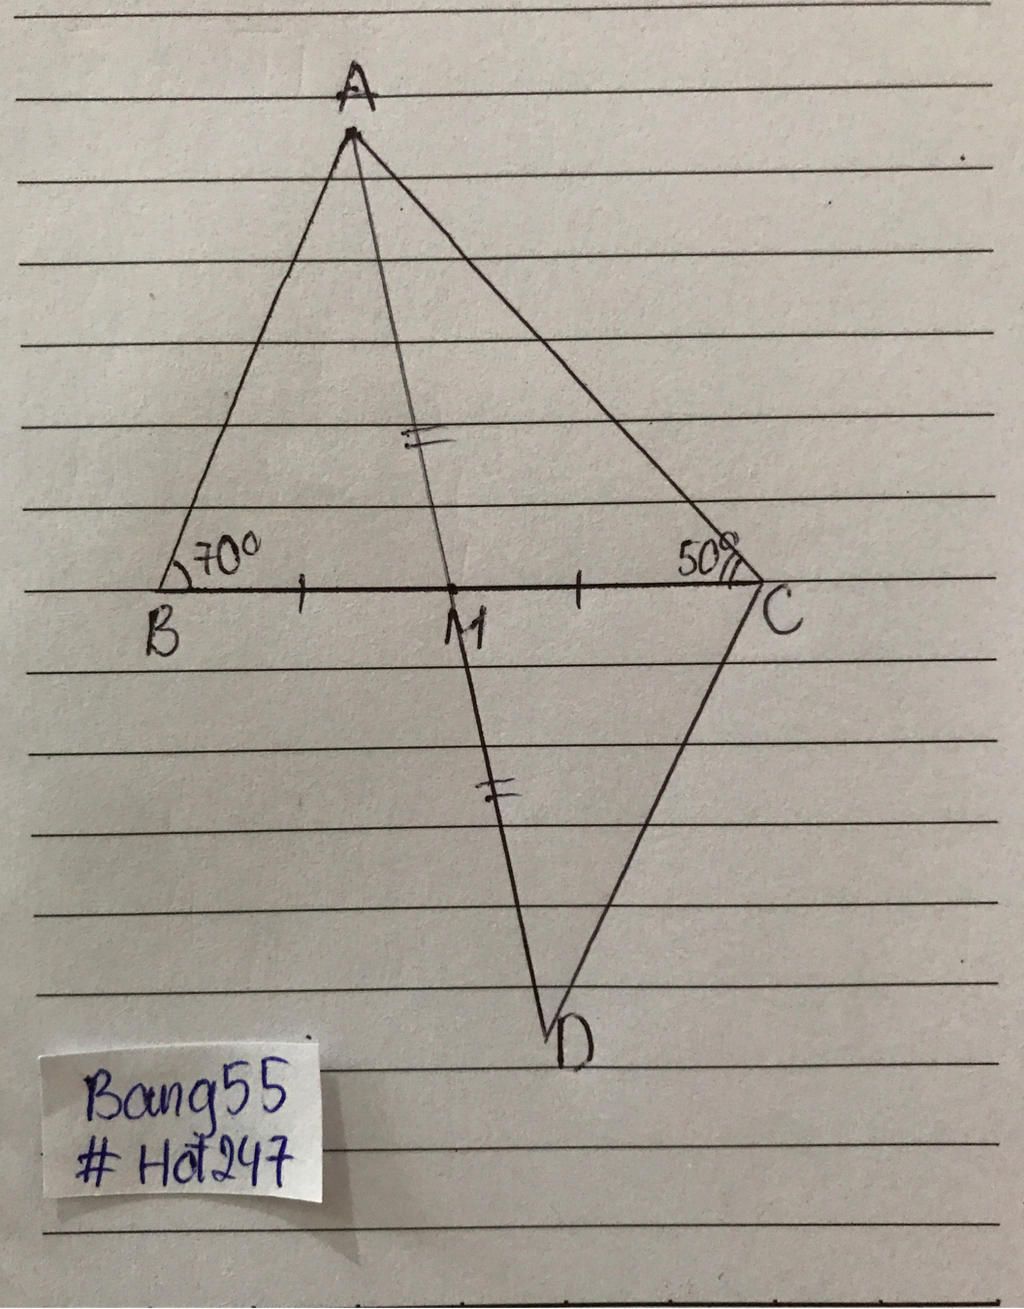 A
70°
50°
B
M
C
D
Bang55
# Hot247